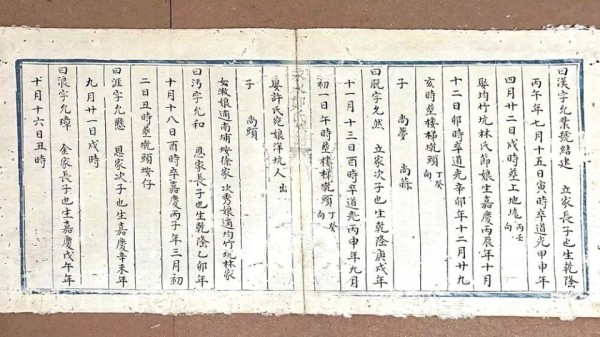 曰漢字允業號結建 立家長子也生乾隆
丙午年七月十五日寅時卒道光甲申年
四月廿二日戌時葬上地墘丙壬向
娶均竹坑林氏節娘生嘉慶丙辰年十月
十二日卯時卒道光辛卯年十二月廿九
亥時葬樓梯墩頭丁癸向
子 尚夢 尚蒜
曰脫字允然 立家次子也生乾隆庚戌年
十一月十三日酉時卒道光丙申年九月
初一日午時葬樓梯墩頭丁癸向
娶許氏宛娘洋坑人 出
子 尚頭
女溆娘適南埔墘徐家 次秀娘適均竹坑林家
曰沔字允和 恩家長子也生乾隆乙卯年
十月十八日酉時卒嘉慶丙子年三月初
二日丑時葬墩頭垵仔
曰涯字允懸 恩家次子也生嘉慶辛未年
九月廿一日戌時
曰浪字允璋 金家長子也生嘉慶戊午年
十月十六日丑時